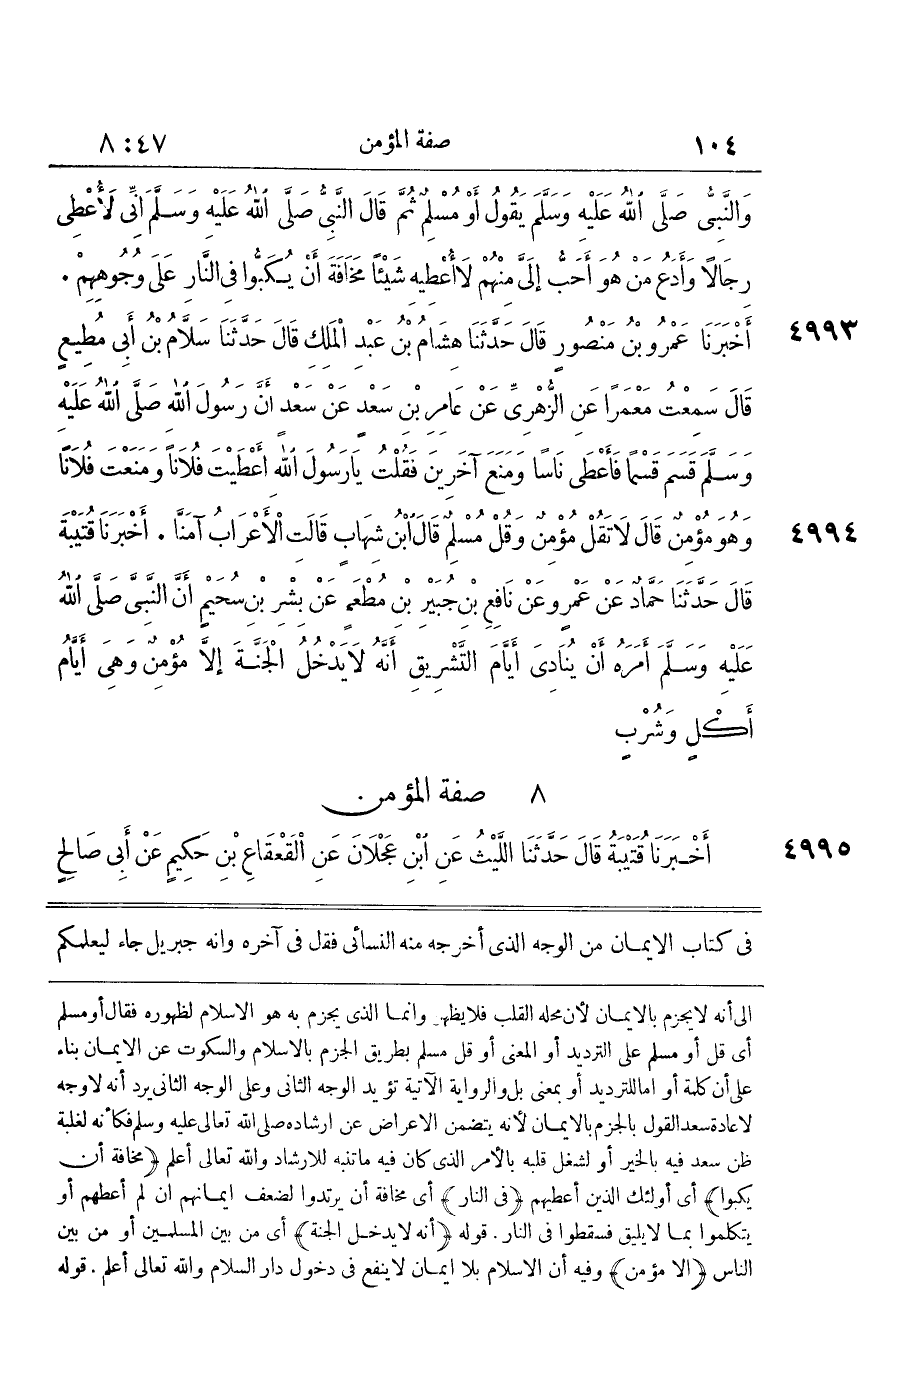 ١٠٤ صفة المؤمن ٤٧ : ٨
وَالنَّبِىُّ صَلَّى ٱللهُ عَلَيْهِ وَسَلَّمَ يَقُولُ أَوْ مُسْلِمٌ ثُمَّ قَالَ النَّبِىُّ صَلَّى ٱللهُ عَلَيْهِ وَسَلَّمَ إِنِّى لَأُعْطِى
رِجَالًا وَأَدَعُ مَنْ هُوَ أَحَبُّ إِلَىَّ مِنْهُمْ لَا أُعْطِيهِ شَيْئًا مَخَافَةَ أَنْ يُكَبُّوا فِى النَّارِ عَلَى وُجُوهِهِمْ .
٤٩٩٣ أَخْبَرَنَا عَمْرُو بْنُ مَنْصُورٍ قَالَ حَدَّثَنَا هِشَامُ بْنُ عَبْدِ الْمَلِكِ قَالَ حَدَّثَنَا سَلَّامُ بْنُ أَبِى مُطِيعٍ
قَالَ سَمِعْتُ مَعْمَرًا عَنِ الزُّهْرِىِّ عَنْ عَامِرِ بْنِ سَعْدٍ عَنْ سَعْدٍ أَنَّ رَسُولَ اللهِ صَلَّى ٱللهُ عَلَيْهِ
وَسَلَّمَ قَسَمَ قَسْمًا فَأَعْطَى نَاسًا وَمَنَعَ آخَرِينَ فَقُلْتُ يَارَسُولَ اللهِ أَعْطَيْتَ فُلَانًا وَمَنَعْتَ فُلَانًا
٤٩٩٤ وَهُوَ مُؤْمِنٌ قَالَ لَا تَقُلْ مُؤْمِنٌ وَقُلْ مُسْلِمٌ قَالَ ٱبْنُ شِهَابٍ قَالَتِ الْأَعْرَابُ آمَنَّا . أَخْبَرَنَا قُتَيْبَةُ
قَالَ حَدَّثَنَا حَمَّادٌ عَنْ عَمْرٍو عَنْ نَافِعِ بْنِ جُبَيْرِ بْنِ مُطْعِمٍ عَنْ بِشْرِ بْنِ سُحَيْمٍ أَنَّ النَّبِىَّ صَلَّى ٱللهُ
عَلَيْهِ وَسَلَّمَ أَمَرَهُ أَنْ يُنَادِىَ أَيَّامَ التَّشْرِيقِ أَنَّهُ لَا يَدْخُلُ الْجَنَّةَ إِلَّا مُؤْمِنٌ وَهِىَ أَيَّامُ
أَكْلٍ وَشُرْبٍ
٨ صفة المؤمن
٤٩٩٥ أَخْبَرَنَا قُتَيْبَةُ قَالَ حَدَّثَنَا اللَّيْثُ عَنِ ٱبْنِ عَجْلَانَ عَنِ الْقَعْقَاعِ بْنِ حَكِيمٍ عَنْ أَبِى صَالِحٍ
فى كتاب الايمان من الوجه الذى أخرجه منه النسائى فقل فى آخره وانه جبريل جاء ليعلمكم
الى أنه لا يجزم بالايمان لأن محله القلب فلا يظهر وانما الذى يجزم به هو الاسلام لظهوره فقال أو مسلم
أى قل أو مسلم على الترديد أو المعنى أو قل مسلم بطريق الجزم بالاسلام والسكوت عن الايمان بناء
على أن كلمة أو اما للترديد أو بمعنى بل والرواية الآتية تؤيد الوجه الثانى وعلى الوجه الثانى يرد أنه لا وجه
لاعادة سعد القول بالجزم بالايمان لأنه يتضمن الاعراض عن ارشاده صلى الله تعالى عليه وسلم فكأنه لغلبة
ظن سعد فيه بالخير أو لشغل قلبه بالأمر الذى كان فيه ما تنبه للارشاد والله تعالى أعلم ﴿مخافة أن
يكبوا﴾ أى أولئك الذين أعطيهم ﴿فى النار﴾ أى مخافة أن يرتدوا لضعف ايمانهم ان لم أعطهم أو
يتكلموا بما لا يليق فسقطوا فى النار . قوله ﴿أنه لا يدخل الجنة﴾ أى من بين المسلمين أو من بين
الناس ﴿الا مؤمن﴾ وفيه أن الاسلام بلا ايمان لا ينفع فى دخول دار السلام والله تعالى أعلم . قوله